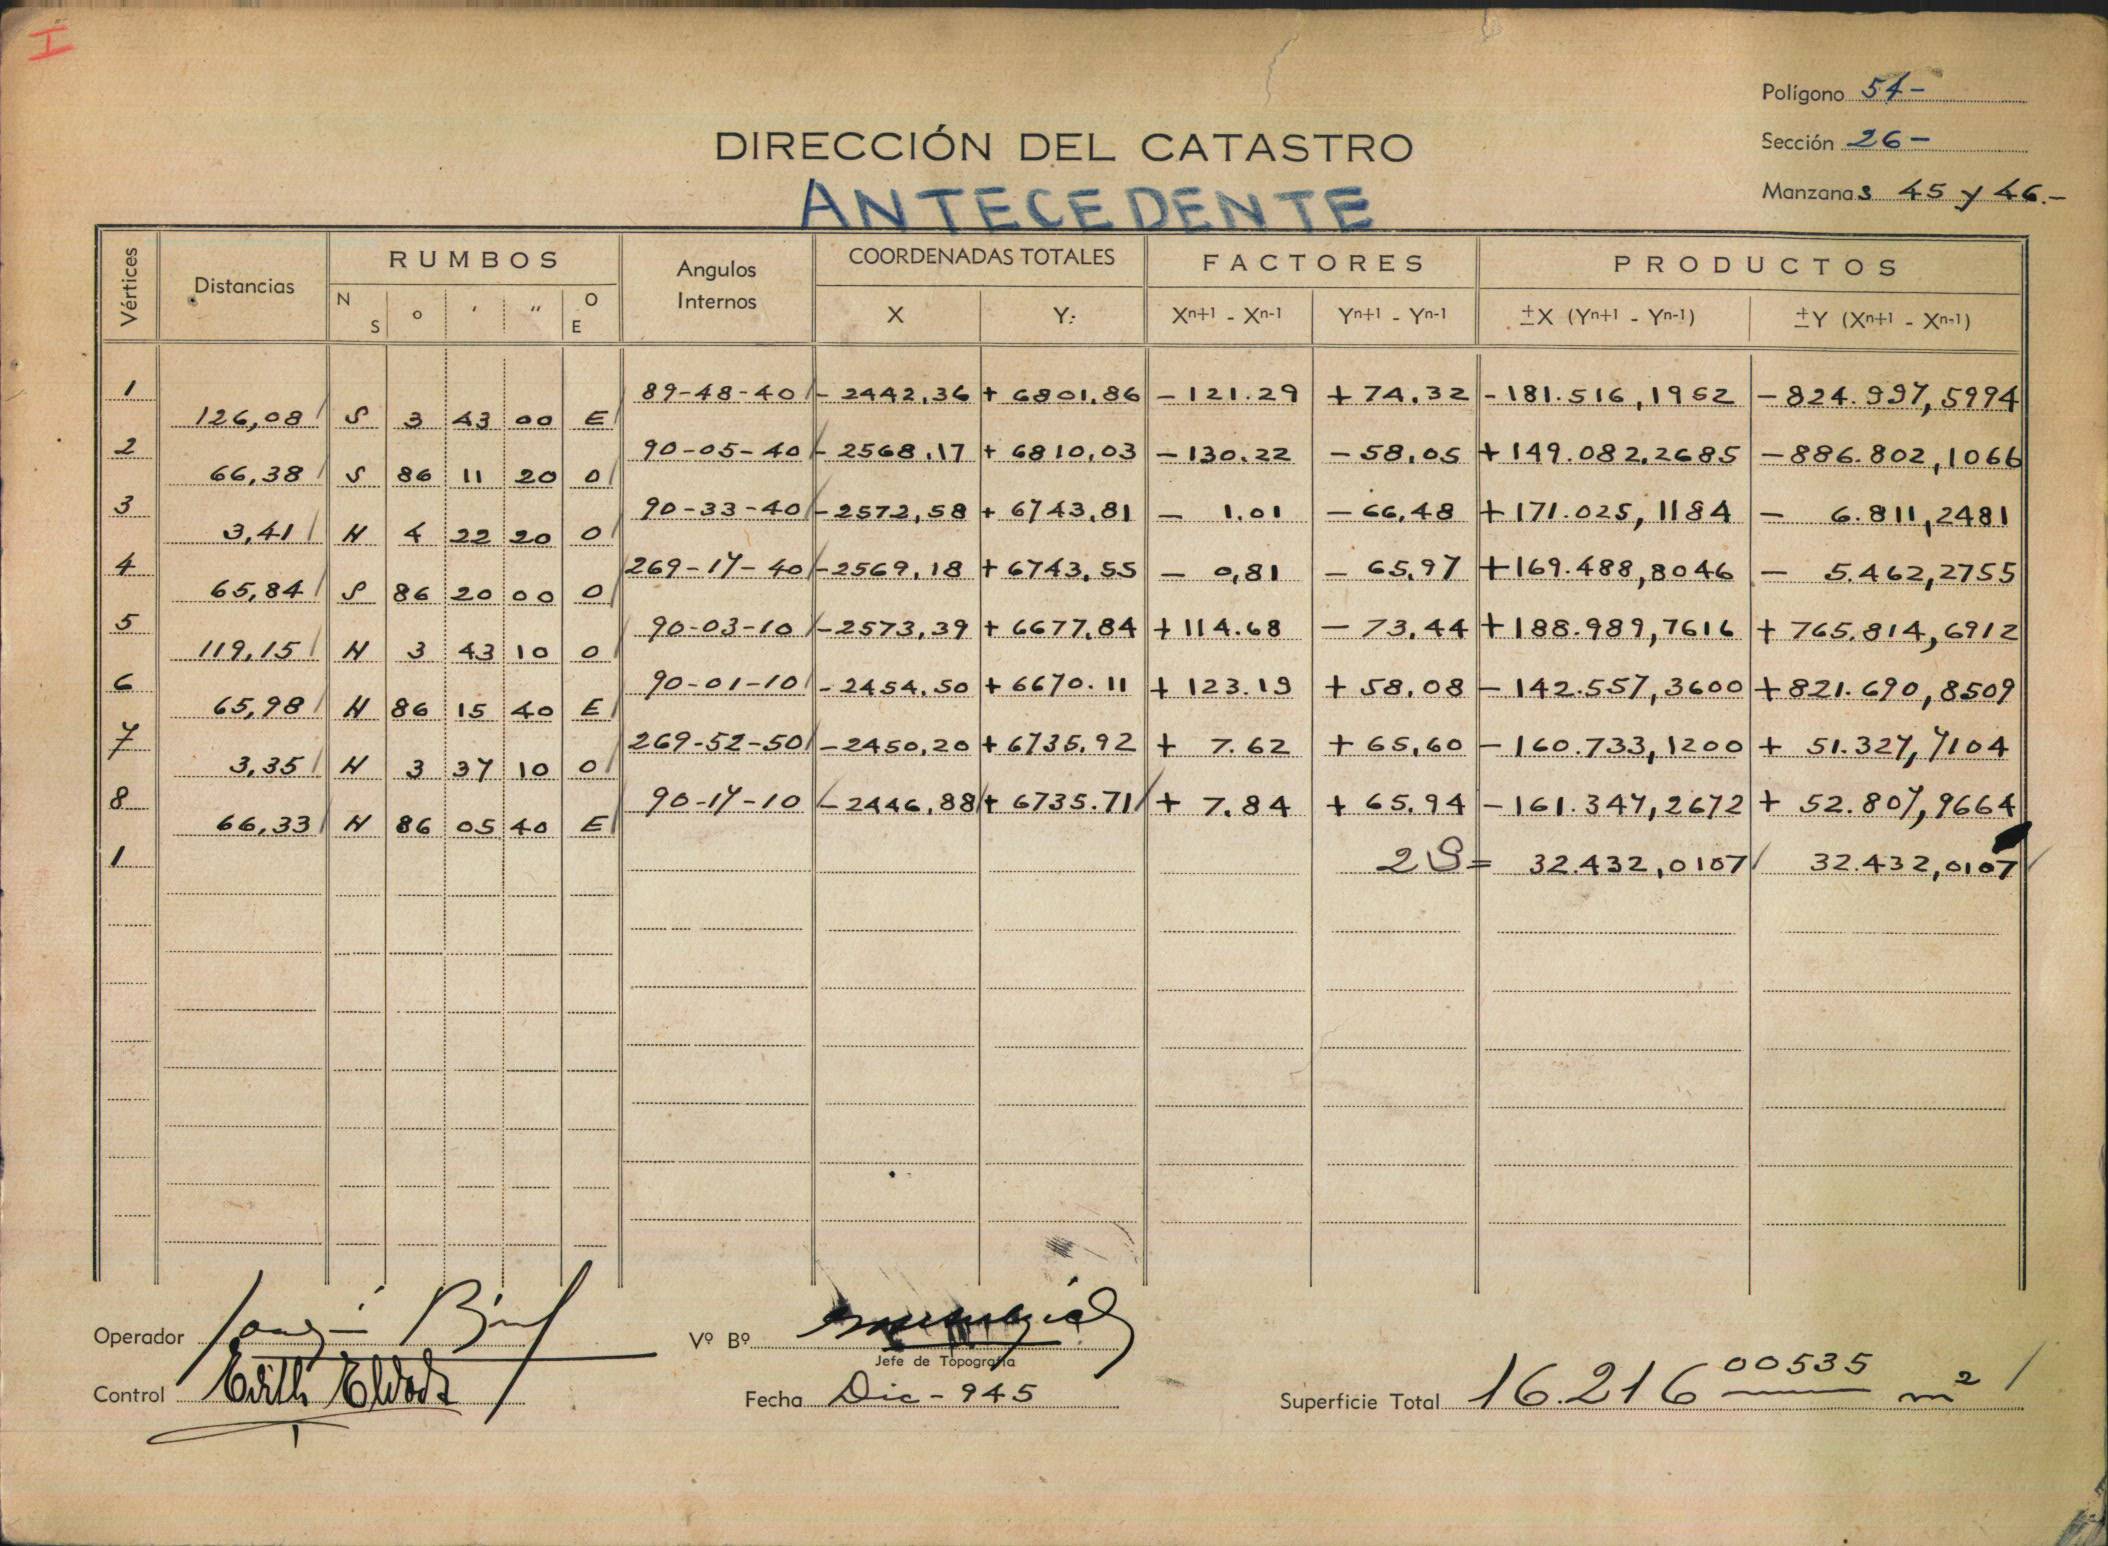 I
Polígono 54-
DIRECCIÓN DEL CATASTRO
Sección 26-
ANTECEDENTE
Manzanas 45 y 46.-
Vértices Distancias RUMBOS Angulos Internos COORDENADAS TOTALES FACTORES PRODUCTOS
N S o ' " O E X Y: Xn+1 - Xn-1 Yn+1 - Yn-1 ±X (Yn+1 - Yn-1) ±Y (Xn+1 - Xn-1)
1 89-48-40 - 2442,36 + 6801,86 - 121.29 + 74,32 - 181.516,1952 - 824.997,5994
126,08 S 3 43 00 E
2 90-05-40 - 2568,17 + 6810,03 - 130.22 - 58,05 + 149.082,2685 - 886.802,1066
66,38 S 86 11 20 O
3 90-33-40 - 2572,58 + 6743,81 - 1.01 - 66,48 + 171.025,1184 - 6.811,2481
3,41 N 4 22 20 O
4 269-17-40 - 2569,18 + 6743,55 - 0,81 - 65,97 + 169.488,8046 - 5.462,2755
65,84 S 86 20 00 O
5 90-03-10 - 2573,39 + 6677,84 + 114.68 - 73,44 + 188.989,7616 + 765.814,6912
119,15 N 3 43 10 O
6 90-01-10 - 2454,50 + 6670.11 + 123.19 + 58,08 - 142.557,3600 + 821.690,8509
65,98 N 86 15 40 E
7 269-52-50 - 2450,20 + 6735,92 + 7.62 + 65,60 - 160.733,1200 + 51.327,7104
3,35 N 3 37 10 O
8 90-17-10 - 2446,88 + 6735.71 + 7.84 + 65,94 - 161.347,2672 + 52.807,9664
66,33 N 86 05 40 E
1 2S = 32.432,0107 32.432,0107
Operador
Vº Bº
Jefe de Topografía
Control Edith
Fecha Dic - 945
Superficie Total 16.216 00535 m²